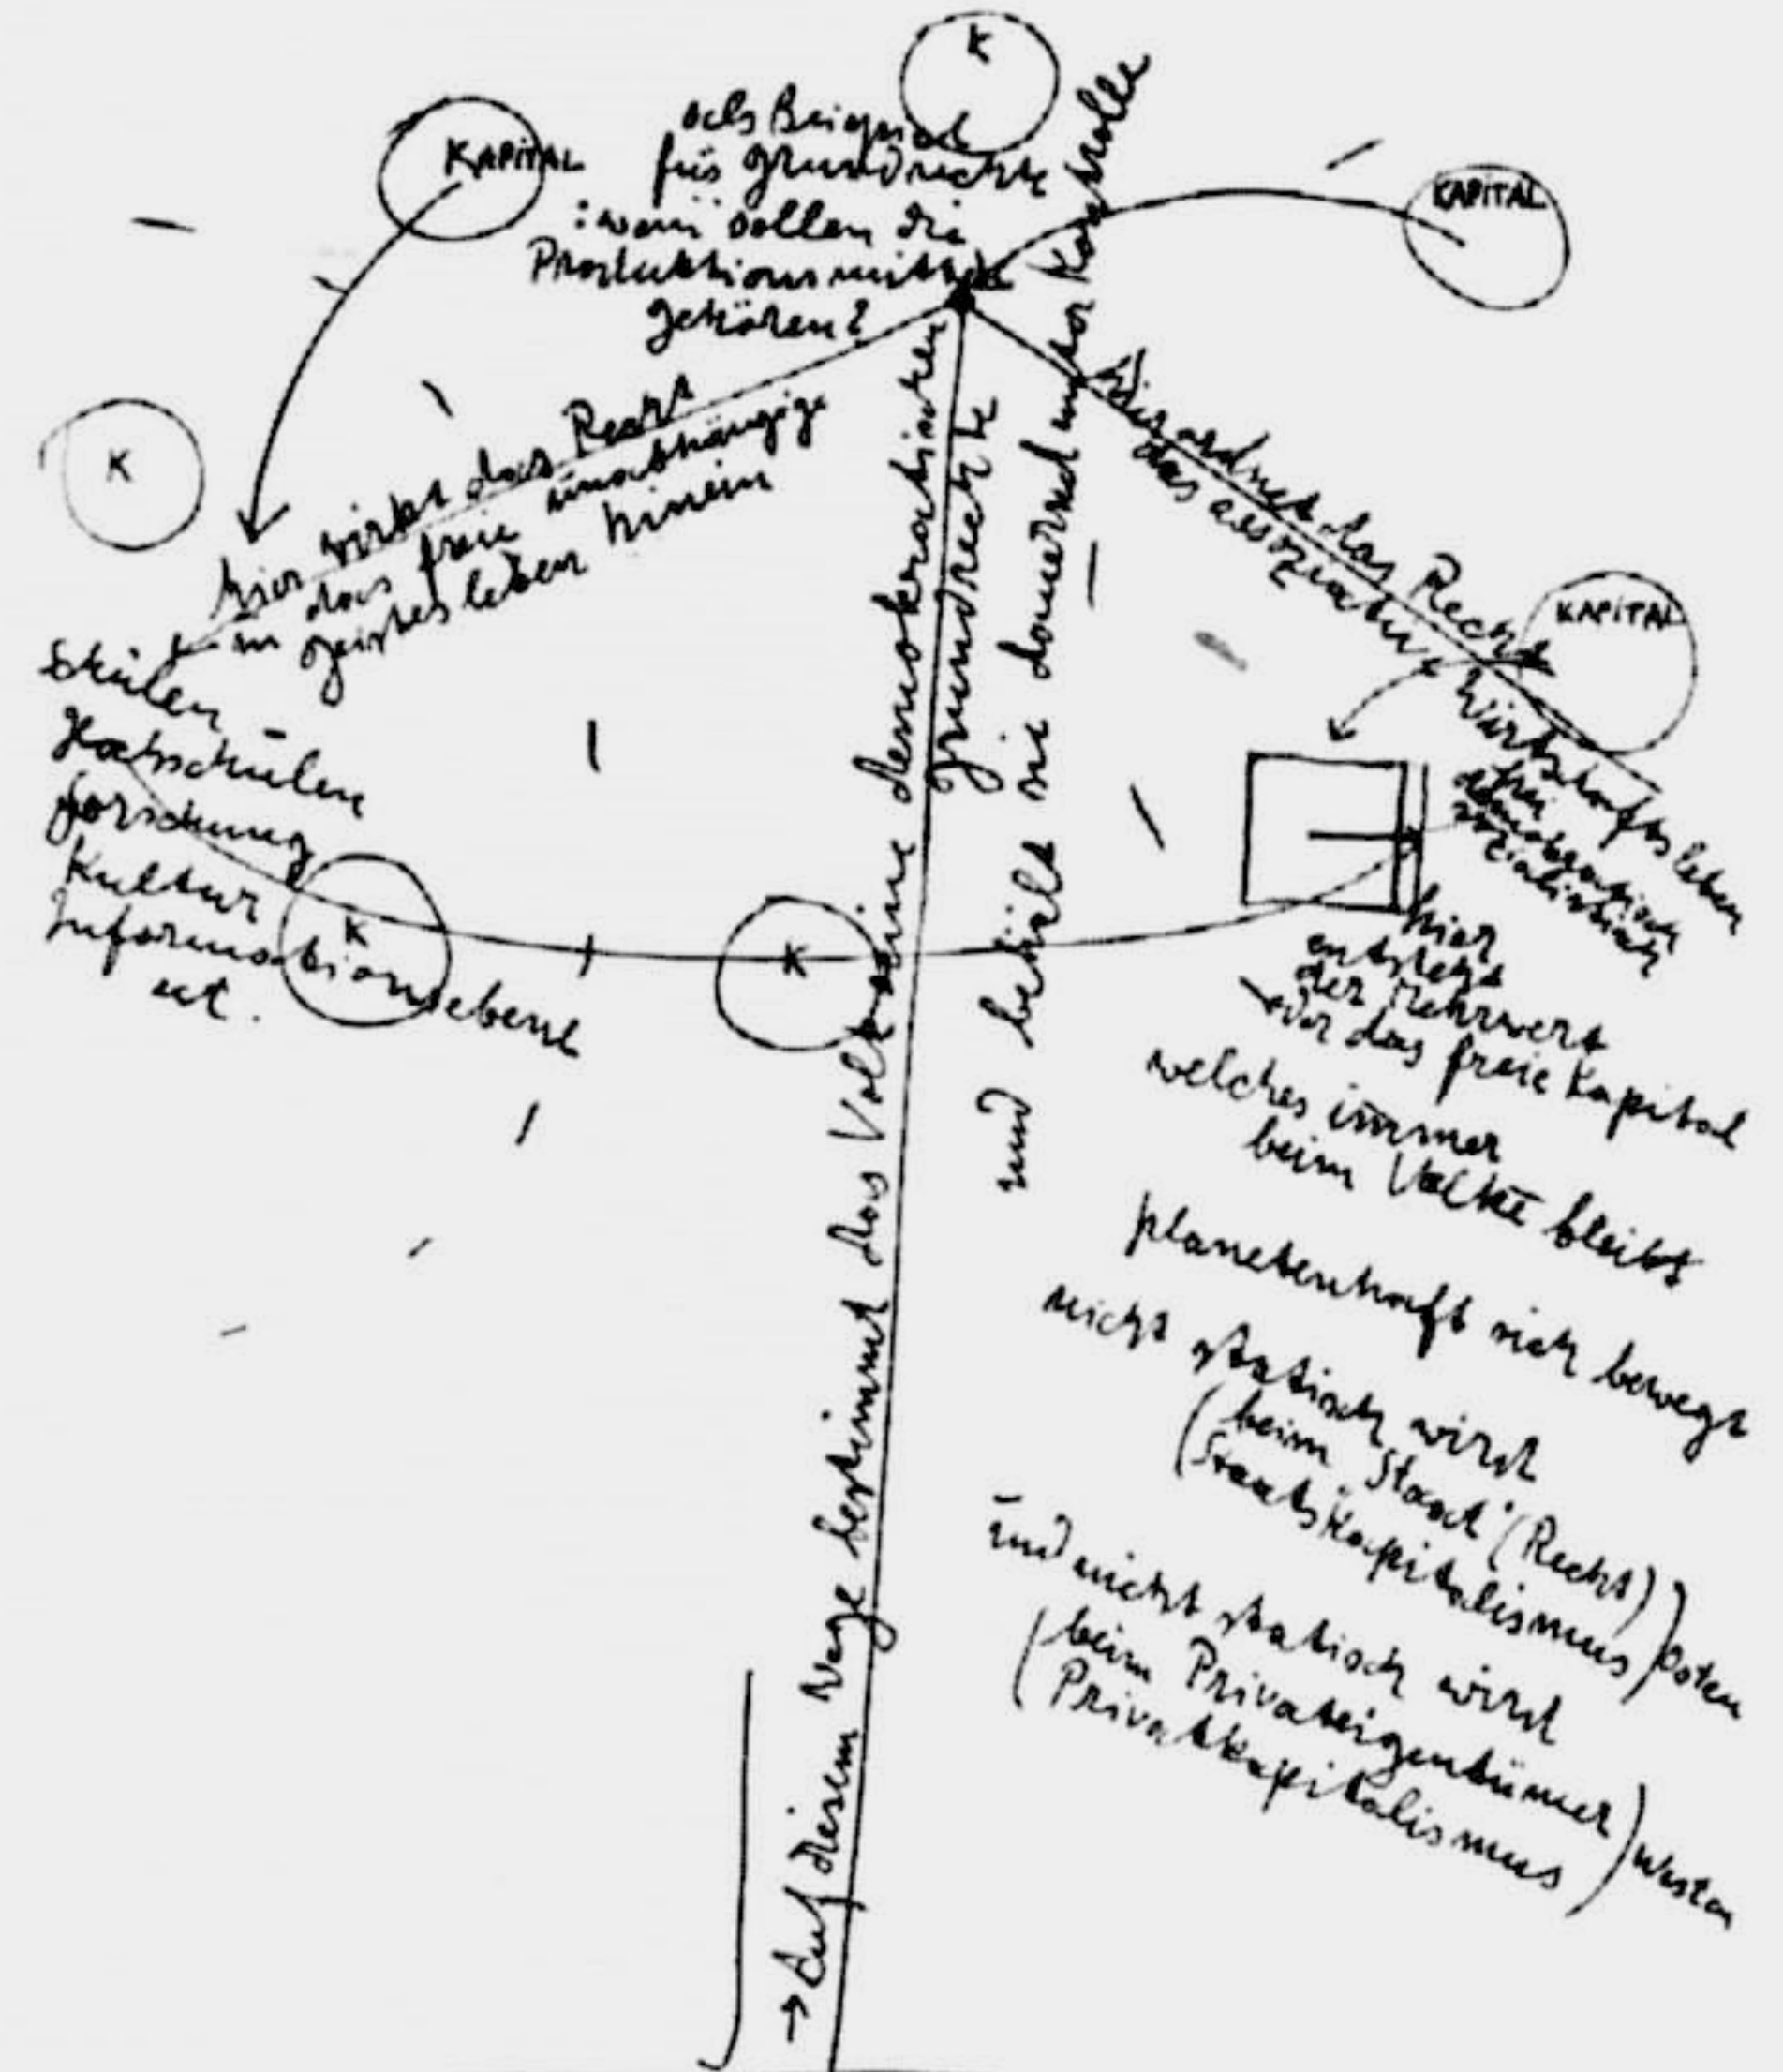 K
KAPITAL
als Beispiel
für Grundrechte
: wem sollen die
Produktionsmittel
gehören?
KAPITAL
K
hier wirkt das Recht
in das freie unabhängige
geistesleben hinein
Schulen
Hochschulen
forschung
Kultur
Informationsebene
K
K
→ Auf diesem Wege bestimmt das Volk seine demokratischen
grundrechte
und behält sie dauernd unter Kontrolle
hier ordnet das Recht
das assoziative
Wirtschaftsleben
KAPITAL
frei
demokratisch
sozialistisch
hier
entsteht
der Mehrwert
oder das freie Kapital
welches immer
beim Volke bleibt
planetenhaft sich bewegt
nicht statisch wird
(beim Staat (Recht))
(Staatskapitalismus) Osten
und nicht statisch wird
(beim Privateigentümer)
(Privatkapitalismus) Westen